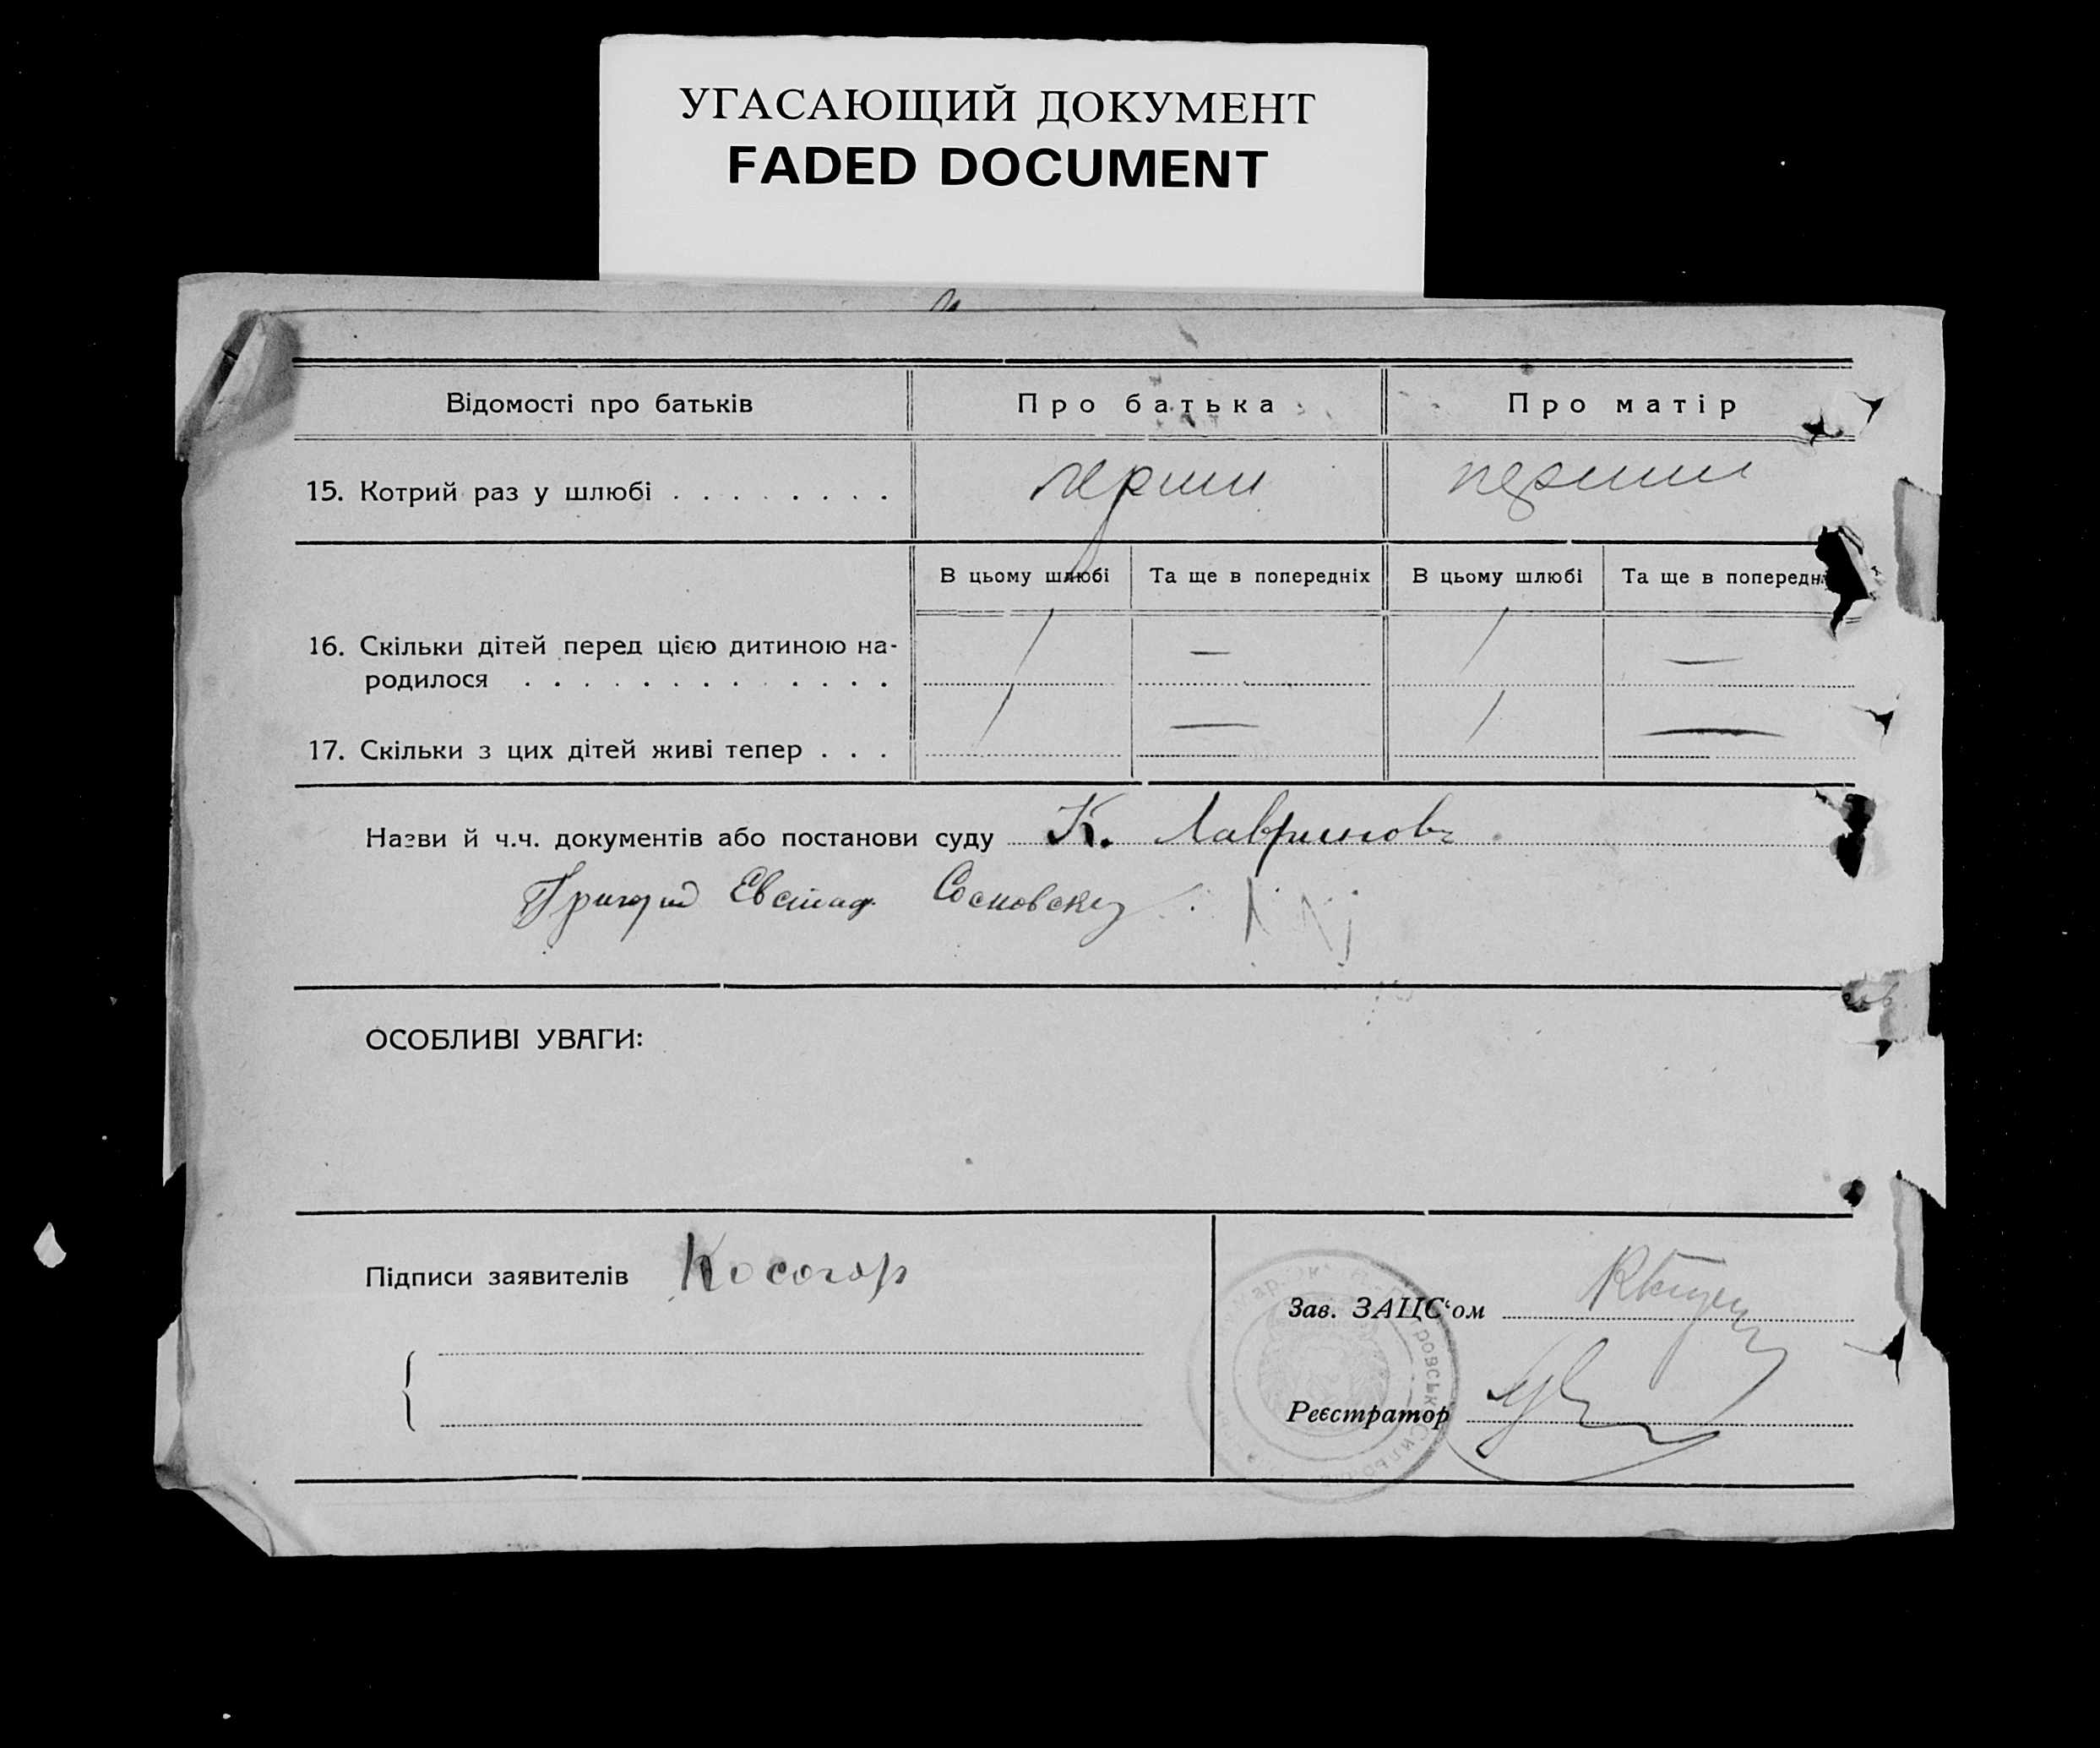 УГАСАЮЩИЙ ДОКУМЕНТ
FADED DOCUMENT
Відомості про батьків
Про батька
Про матір
15. Котрий раз у шлюбі
перший
перший
В цьому шлюбі
Та ще в попередніх
В цьому шлюбі
Та ще в попередн
16. Скільки дітей перед цією дитиною на-
родилося
1 — 1 —
17. Скільки з цих дітей живі тепер
1 — 1 —
Назви й ч.ч. документів або постанови суду К.
Григорий Евстаф. Сосновский
ОСОБЛИВІ УВАГИ:
Підписи заявителів Косогор
Зав. ЗАЦС‘ом
Реєстратор